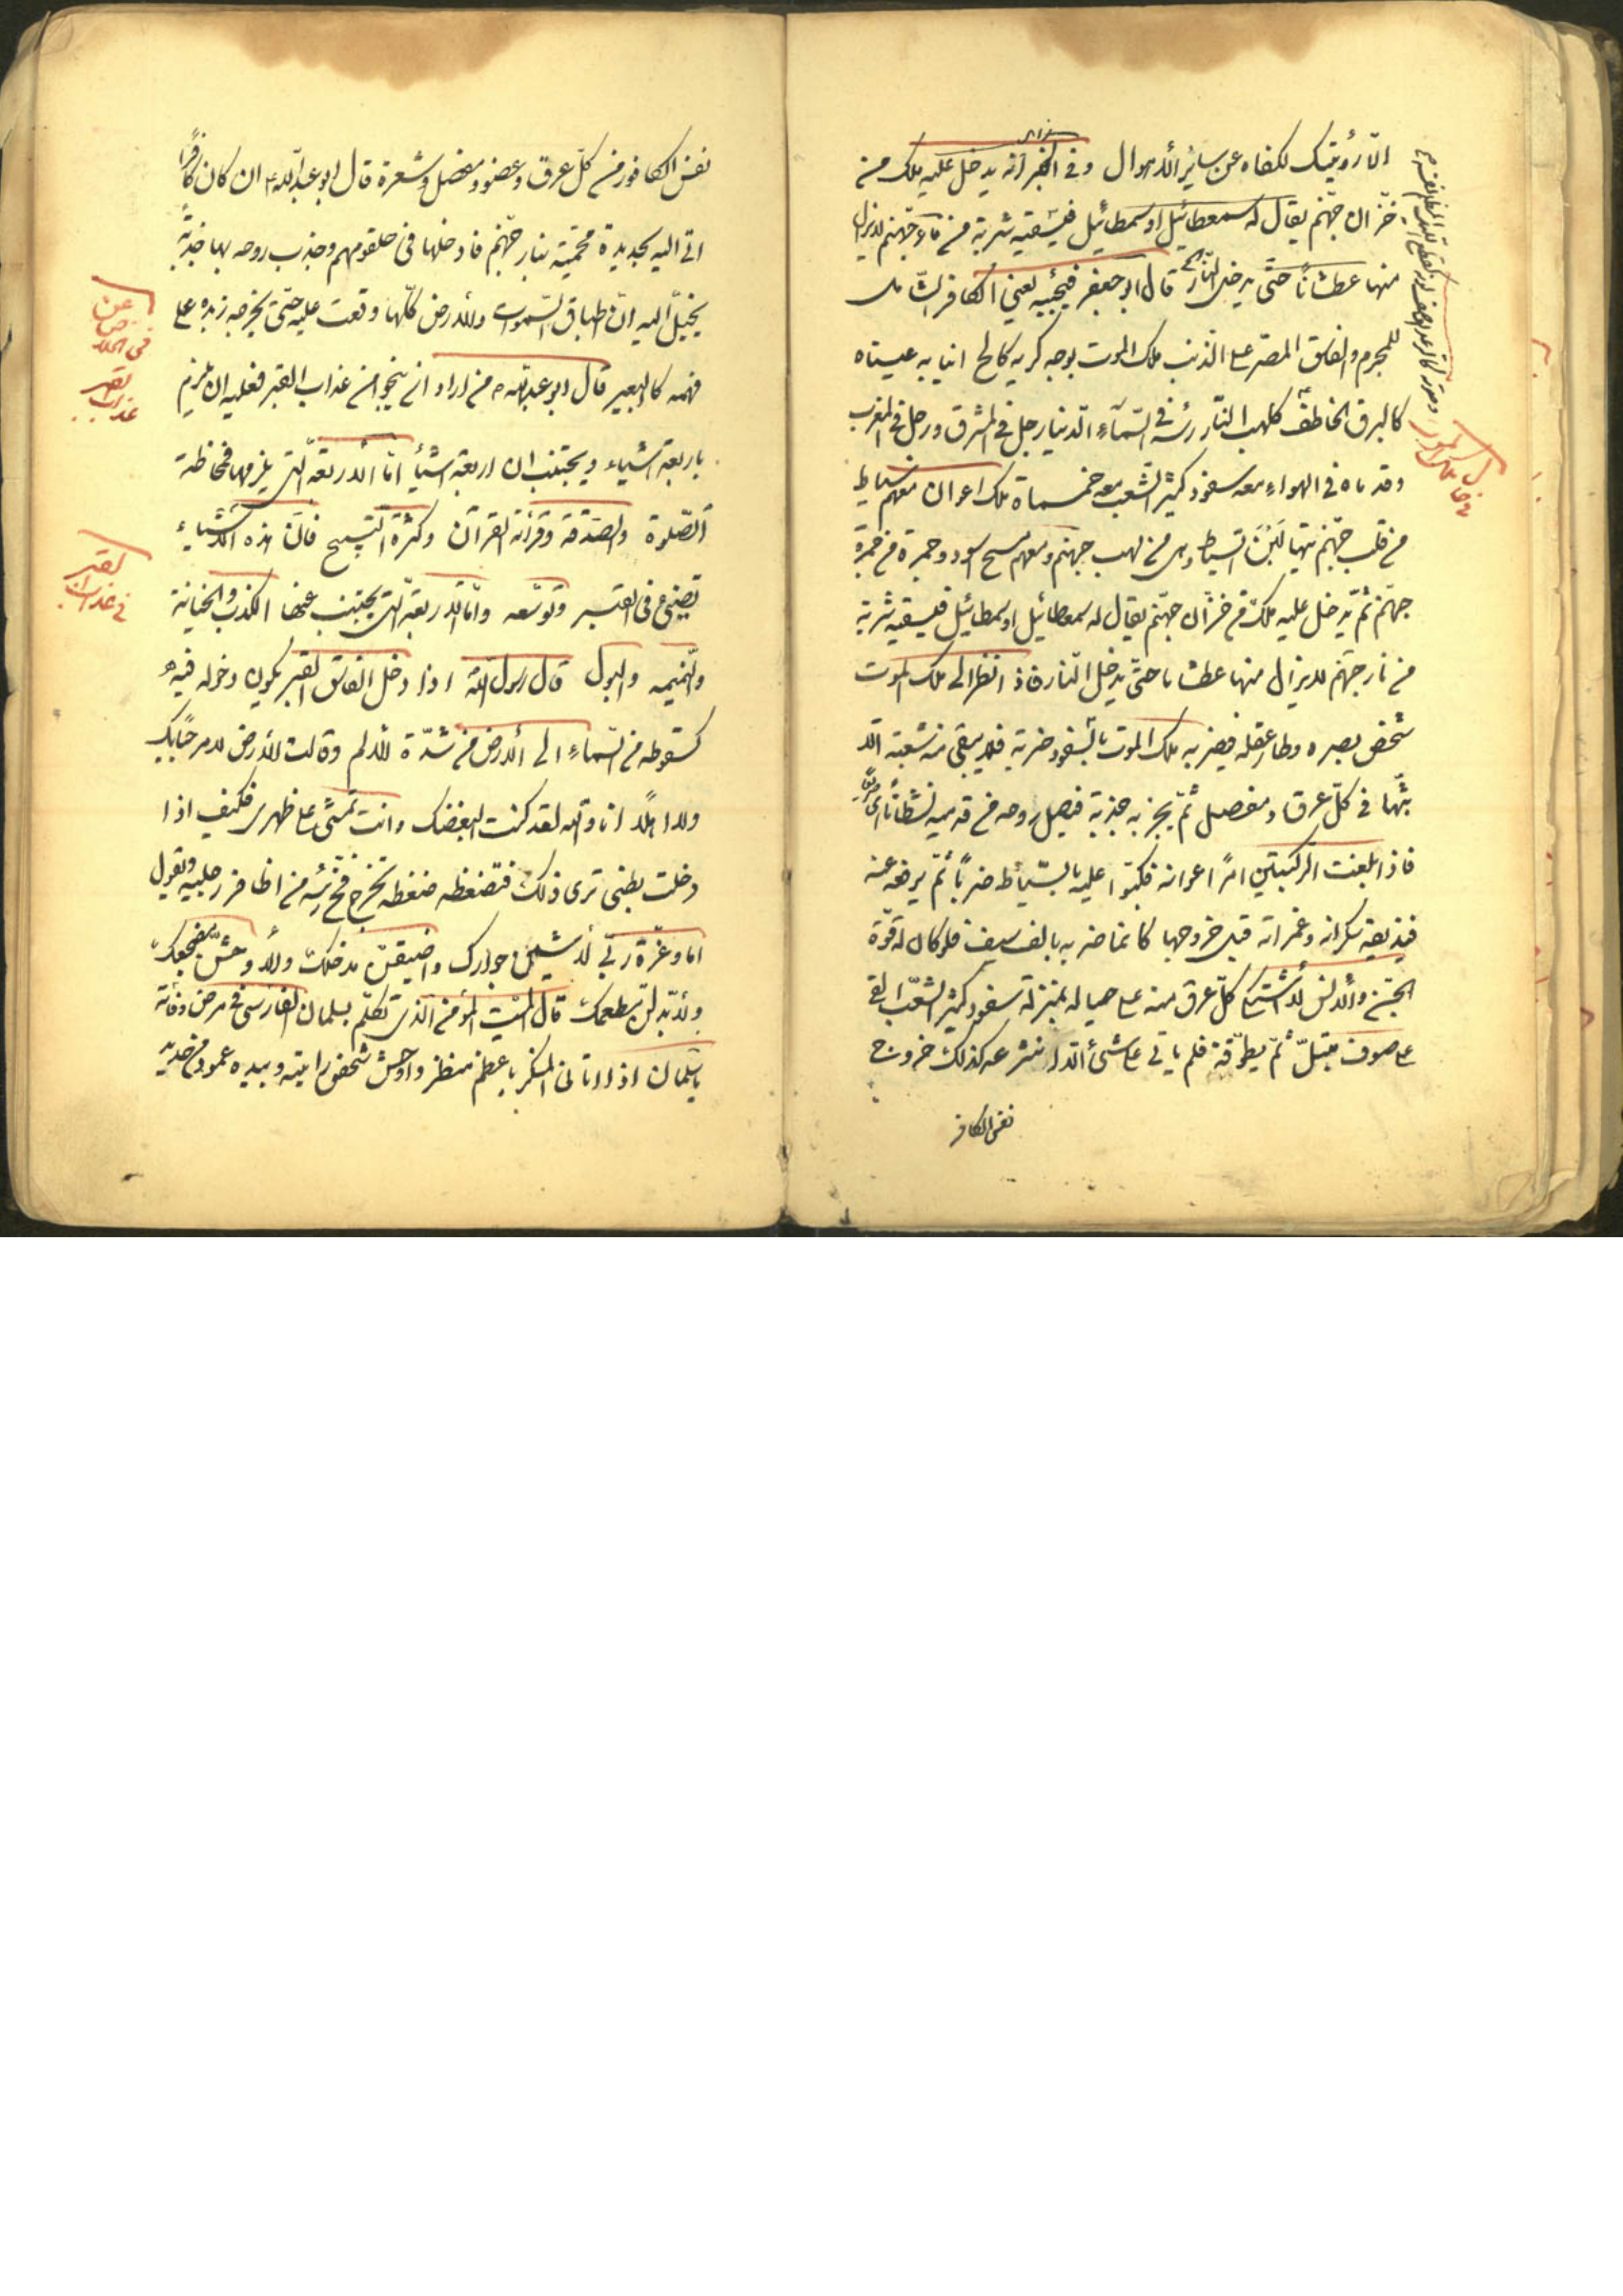 الّا رؤيتك لكفاه عن ساير الأهوال وفى الخبر انّه يدخل عليه ملك من
خزّان جهّنم يقال له سمعطائيل او سمطائيل فيسقيه شربة من ماء جهّنم لايزال
منها عطشانًا حتّى يدخل النّار قال ابو جعفر فيجيبه يعنى الكافر
للمجرم والفاسق المصرّ على الذنب ملك الموت بوجه كريه كالح انيابه عيناه
كالبرق الخاطف كلهب النّار رئسه فى السّمآءِ الدّنيا رجل فى المشرق ورجل فى المغرب
وقدماه فى الهواءِ معه سفود كثير الشّعب معه خمسماة ملك اعوان معهم سياط
من قلب جهّنم لين السّياط وهى من لهب جهنم ومعهم مسح اسود وجمرة من جمرة
جهنّم ثمّ يدخل عليه ملك من خزّان جهنّم يقال له سمعطائيل او سمطائيل فيسقيه شربة
من نار جهنّم لايزال منها عطشانا حتّى يدخل النّار فاذا نظر الى ملك الموت
شخص بصره وطار عقله فيضربه ملك الموت بالسّفود ضربة فلا يبقى من شعبة الّا
فى كلّ عرق ومفصل ثمّ يجذبه جذبة فيصل روحه من قدميه
فاذا بلغت الركبتين امرًا اعوانه فكبّوا عليه بالسّياط ضربًا ثمّ يرفعه عنه
فيذيقه سكراته وغمراته قبل خروجها كانّما ضربه بالف سيف فلو كان له قوّة
الجنّ والأنس لأشتكى كلّ عرق منه على حياله بمنزلة سفود كثير الشّعب القى
على صوف مبتلّ ثمّ يطوّقه فلم ياتى على شئ الّا انتزعه كذلك خروج
نفس الكافر
نفس الكافور من كلّ عرق وعضو ومفصل وشعرة قال ابو عبدالله ان كان كافرًا
اتى اليه بحديدة محمّية بنار جهّنم فادخلها فى حلقومهم وجذب روحه بها جذبة
يخيّل اليه انّ اطباق السّموات والأرض كلّها وقعت عليه حتّى يخرجه زبده على
فمه كالبعير قال ابو عبدالله من اراد ان ينجو من عذاب القبر فعليه ان يلزم
باربعة اشياء ويجتنب ان اربعة اشيأ امّا الأربعة الّتى يلزمها فمحافظة
الصّلوة والصّدقة وقرأئة القرأن وكثرة التّسبيح فانّ هذه الأشياء
تضيئ فى القبر وتوسّعه وامّا الأربعة الّتى يجتنب عنها الكذب والخيانة
والنّميمه والبول قال رسول الله اذا دخل الفاسق القبر يكون دخوله فيه
كسقوطه من السّماءِ الى الأرض من شدّة الألم وقالت الأرض لا مرحبًا بك
ولا اهلًا انا والله لقد كنت ابغضك وانت تمشى على ظهرى فكيف اذا
دخلت بطنى ترى ذلك فتضغطه ضغطة تخرج مخ رئسه من اظافر رجليه وتقول
اما وعزّة ربّى لأسيئنّ جوارك واضيقنّ مدخلك ولأوحشنّ مضجعك
ولأبدلنّ مطعمك قال الميّت المؤمن الّذى تكلّم بسلمان الفارسى فى مرض وفاته
يا سلمان اذا اتانى المنكر باعظم منظر واوحش شخص رايته وبيده عمود من حديد
عن
فى الخلاص
عذاب القبر
القبر
فى عذاب